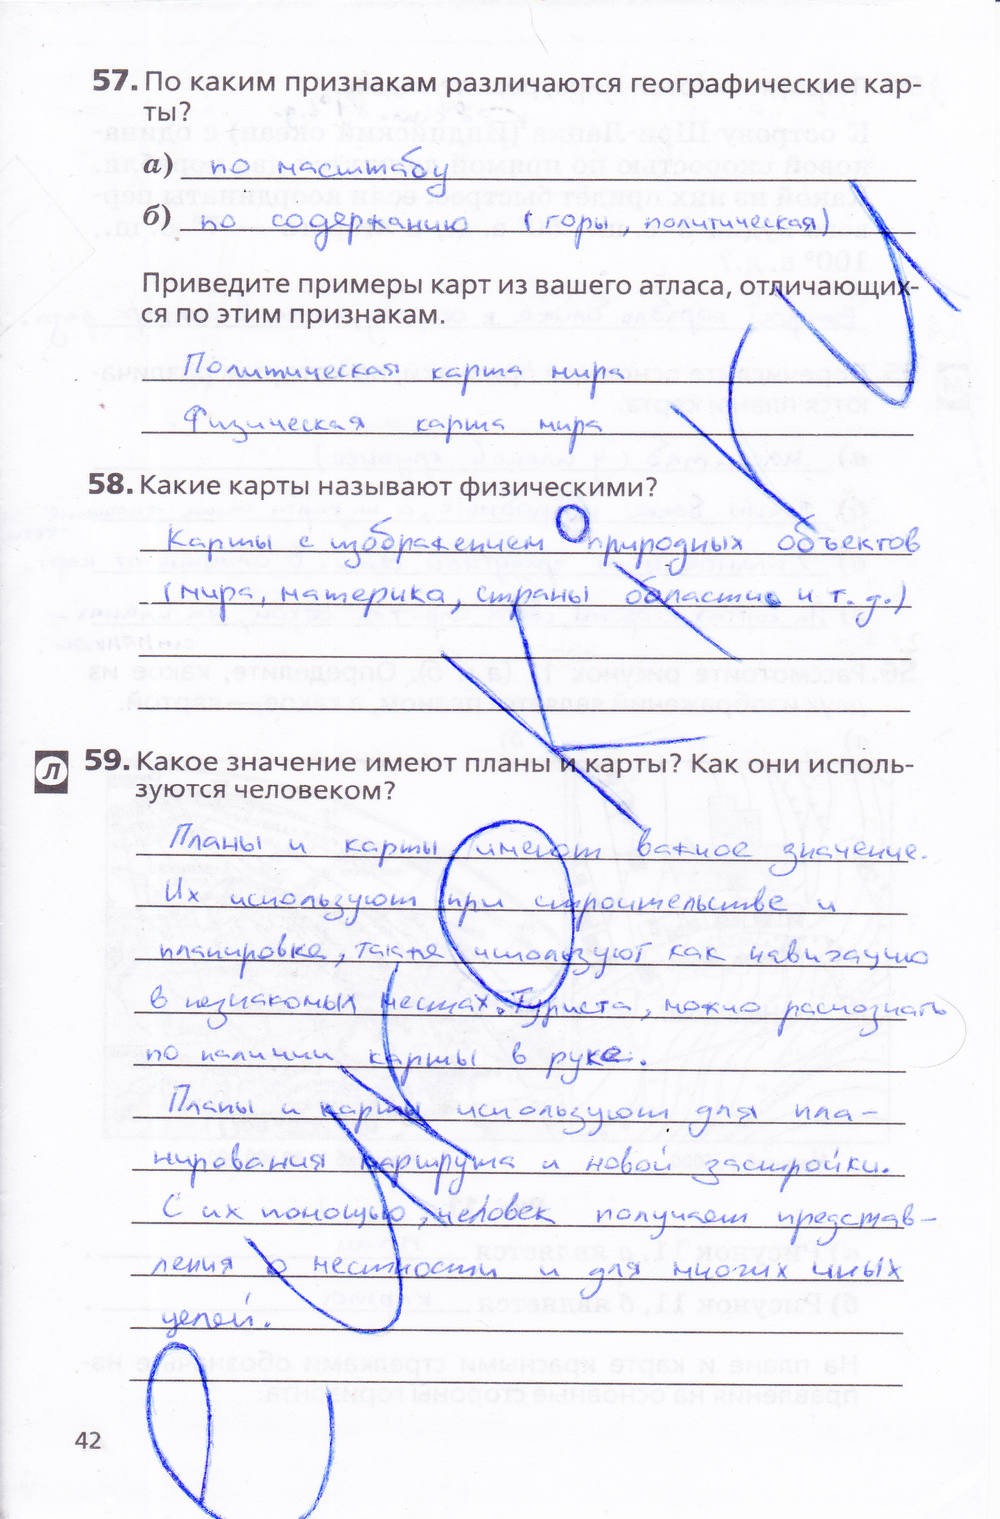 57. По каким признакам различаются географические кар-
ты?
а) по масштабу
б) по содержанию (горы, политическая)
Приведите примеры карт из вашего атласа, отличающих-
ся по этим признакам.
Политическая карта мира
Физическая карта мира
58. Какие карты называют физическими?
Карты с изображением природных объектов
(мира, материка, страны области и т.д.)
Л 59. Какое значение имеют планы и карты? Как они исполь-
зуются человеком?
Планы и карты имеют важное значение.
Их используют при строительстве и
планировке, также используют как навигацию
в незнакомых местах. Туриста, можно распознать
по наличии карты в руке.
Планы и карты используют для пла-
нирования маршрута и новой застройки.
С их помощью, человек получает представ-
ления о местности и для многих иных
целей.
42